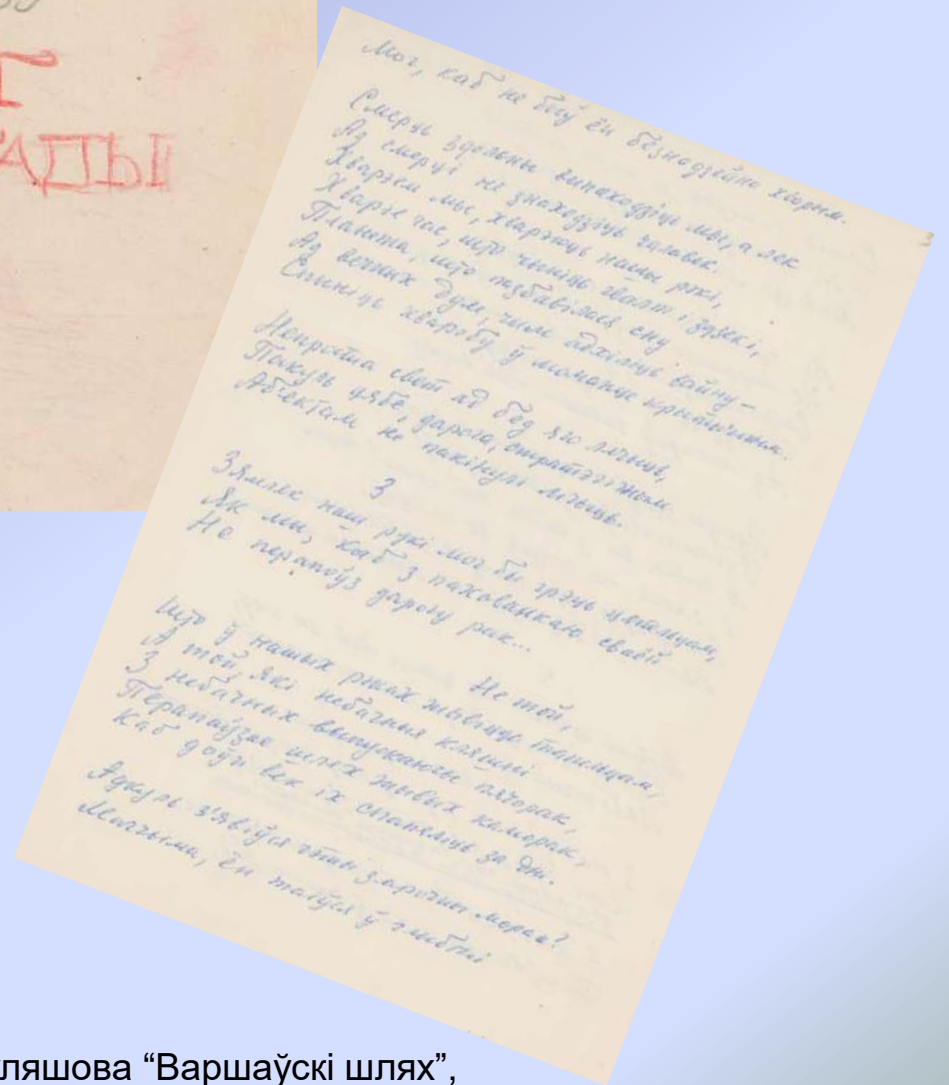 Г
АДЫ
Мог, каб не быў ён безнадзейна хворым.
Смерць здольны вынаходзіць мы, а лек
Ад смерці не знаходзіць чалавек.
Хварэем мы, хварэюць нашы рэкі,
Хварэе час, што чыніць гвалт і здзекі,
Планета, што пазбавілася сну
Ад вечных дум, чым адхіліць вайну –
Спыніць хваробу ў момант крытычным.
Няпроста свет ад бед яго лячыць,
Пакуль цябе, дарога, стратэгічным
Аб'ектам не пакінулі лічыць.
3
Зямляк наш рукі мог бы грэць цяпельцам,
Як мы, каб з пахованкаю сваёй
Не перапоўз дарогу рак...
Не той,
Што ў нашых рэках жывіцца
А той, які нябачныя кляшні
З нябачных выпускаючы пячорак,
Перапаўзае шлях жывых каморак,
Каб доўгі век іх спапяліць за дні.
Адкуль з'явіўся гэты змрочны морак?
Магчыма, ён таіўся ў глыбіні
ляшова “Варшаўскі шлях”,